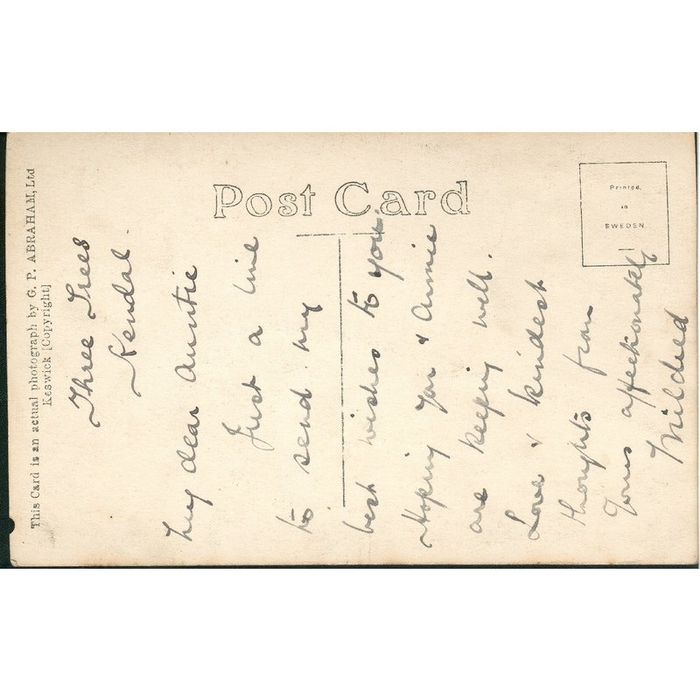 This Card is an actual photograph by G. P. ABRAHAM, Ltd
Keswick [Copyright]
Post Card
Printed
in
SWEDEN
Three Trees
Kendal.
My dear Auntie
Just a line
to send my
best wishes to you.
Hoping you & Annie
are keeping well.
Love & kindest
thoughts from
Yours affectionately
Mildred